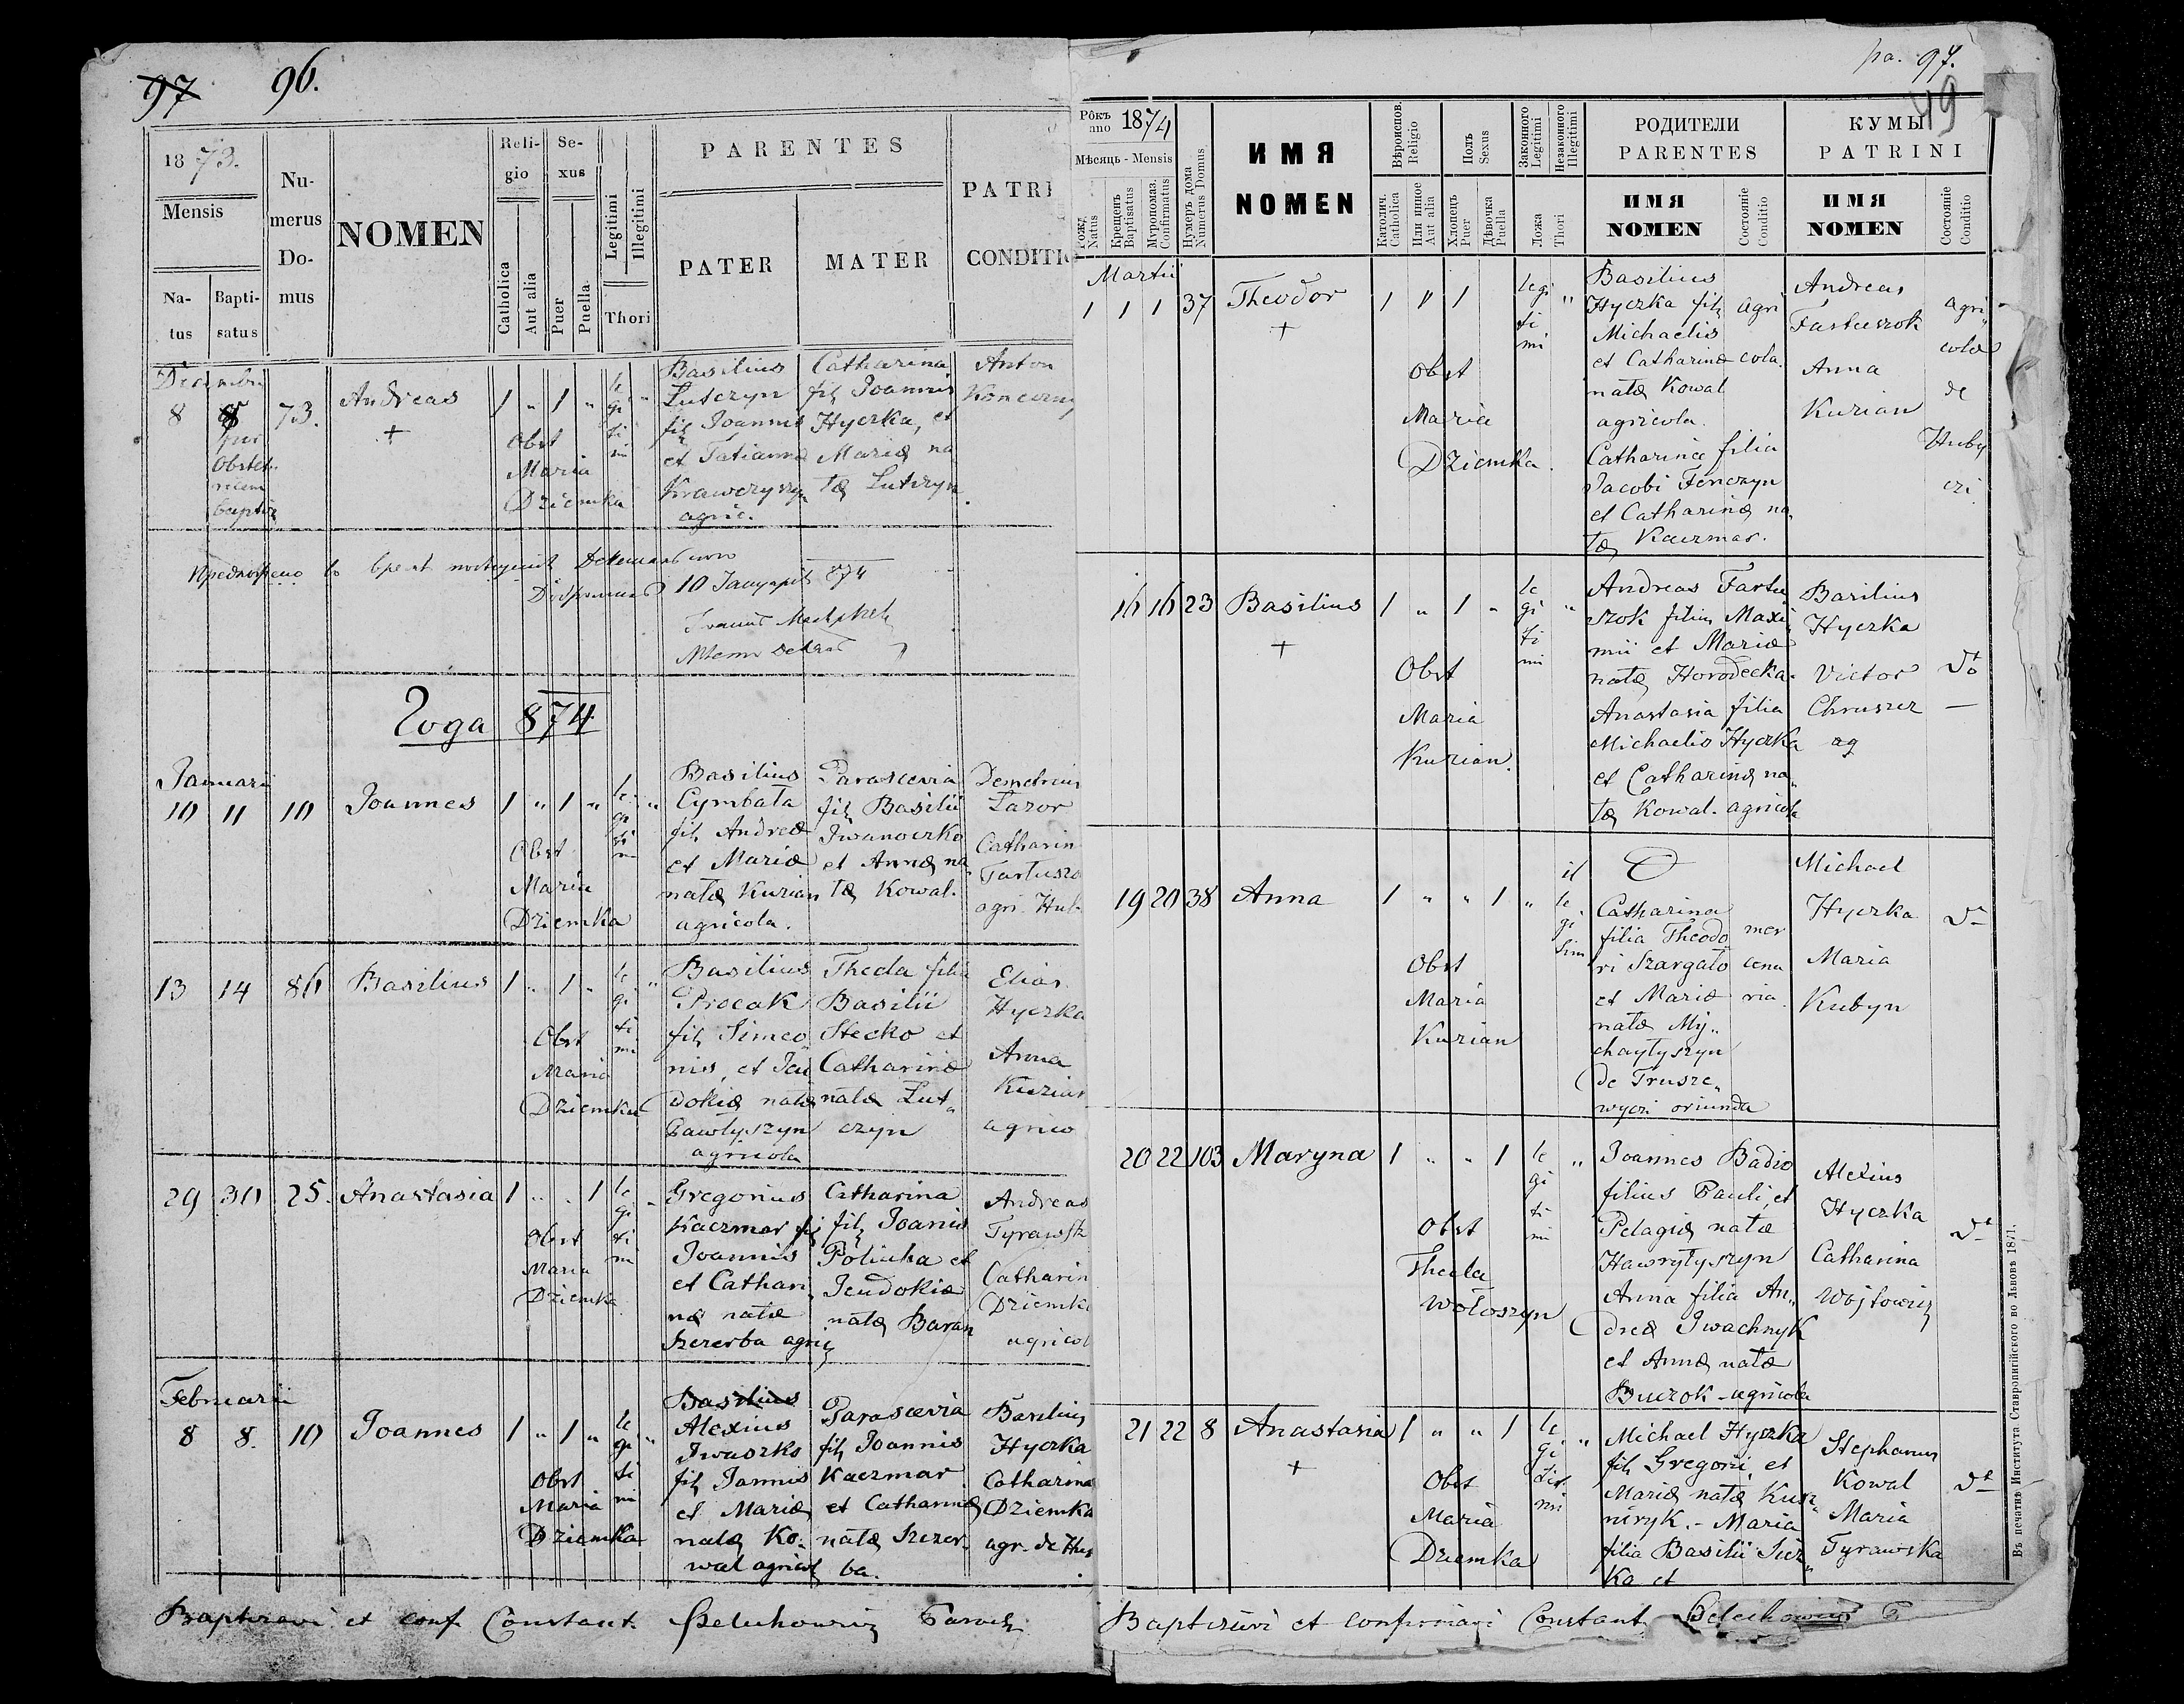 97 96.
1873.
Mensis
Natus
Baptisatus
Numerus Domus
NOMEN
Religio
Catholica
Aut alia
Sexus
Puer
Puella
Legitimi
Illegitimi
Thori
PARENTES
PATER
MATER
PATRI
CONDITI
Decembri
8 8 73. Andreas 1 " 1 " legitimi "
+
Obstet
ricem
baptiz
Obst
Maria
Dziemka
Basilius
Lutczyn
fil Joannis
et Tatianna
Krawczyszyn
agric.
Catharina
fil Joannis
Hyczka, et
Mariæ na
tæ Lutczyn.
Anton
10 874
Года 874
Januari
10 11 10 Joannes 1 " 1 " legitimi "
Obst
Maria
Dziemka
Basilius
Cymbata
fil Andreæ
et Mariæ
natæ Kurian
agricola.
Parascevia
fil Basilii
Iwanoczko
et Annæ na
tæ Kowal.
Demetrius
Lazor
Catharin
Fartuszo
agri. Hub
13 14 86 Basilius 1 " 1 " legitimi "
Obst
Maria
Dziemka
Basilius
Procak
fil Simeo
nis, et Jeu
dokiæ natæ
Pawlyszyn
agricola
Thecla filia
Basilii
Stecko et
Catharinæ
natæ Lut"
czyn
Elias
Hyczka
Anna
Kurian
agrico
29 30 25. Anastasia 1 " " 1 legi ti mi
Obst
Maria
Dziemka
Gregorius
Kaczmar fil
Joannis
et Cathari
næ natæ
Szczerba agric
Catharina
fil Joanis
Poliucha et
Jeudokiæ
natæ Baran
Andreas
Tyrawsk
Catharin
Dziemka
agricol
Februarii
8 8. 10 Joannes 1 " 1 " legitimi "
Obst
Maria
Dziemka
Basilius
Alexius
Iwaszko
fil Joannis
et Mariæ
natæ Ko-
wal agricol
Parascevia
fil Joannis
Kaczmar
et Catharinæ
natæ Szczer-
ba.
Basilius
Hyczka
Catharina
Dziemka
agr. de Hu
Baptizavi et conf Constant. Paroch
pa. 97.
49
Рôкъ
anno 1874
Мѣсяць - Mensis
Рожд.
Natus
Крещенъ
Baptisatus
Мѵропомаз.
Confirmatus
Нумеръ дома
Numerus Domus
ИМЯ
NOMEN
Вѣроиспов.
Religio
Католич.
Catholica
Или инное
Aut alia
Полъ
Sexus
Хлопецъ
Puer
Дѣвочка
Puella
Законного
Legitimi
Незаконного
Illegitimi
Ложа
Thori
РОДИТЕЛИ
PARENTES
ИМЯ
NOMEN
Состояніе
Conditio
КУМЫ
PATRINI
ИМЯ
NOMEN
Состояніе
Conditio
Martii
1 1 1 37 Theodor 1 " 1 legitimi "
+
Obst
Maria
Dziemka.
Basilius
Hyczka fil
Michaelis
et Catharinæ
natæ Kowal
agricola.
Catharina filia
Jacobi Fenczyn
et Catharinæ na
tæ Kaczmar.
agri
cola.
Andreas
Fartuszok
Anna
Kurian
agri
colæ
de
Huby
czi
16 16 23 Basilius 1 " 1 " legitimi "
+
Obst
Maria
Kurian.
Andreas Fartu
szok filius Maxi
mii et Mariæ
natæ Horodecka.
Anastasia filia
Michaelis Hyczka
et Catharinæ na"
tæ Kowal. agricola
Basilius
Hyczka
Victor
Chruszcz
ag
dto
19 20 38 Anna 1 " " 1 " illegitim
Obst
Maria
Kurian
Catharina
filia Theodo
ri Szargało
et Mariæ
natæ My"
chaylyszyn
de Trusze"
wyczi oriunda
mer
cena
ria.
Michael
Hyczka
Maria
Kubyn
dto
20 22 103 Maryna 1 " " 1 legitimi "
Obst
Thecla
Wołoszyn
Joannes Badio
filius Pauli, et
Pelagiæ natæ
Hawrylyszyn
Anna filia An"
dreæ Iwachnyk
et Annæ natæ
Buczok - agricola
Alexius
Hyczka
Catharina
Wojtowicz
dto
21 22 8 Anastasia 1 " " 1 legitimi "
+
Obst
Maria
Dziemka
Michael Hyczka
fil Gregorii, et
Mariæ natæ Kusz"
niryk. - Maria
filia Basilii
ka et
Stephanus
Kowal
Maria
Tyrawska
dto
Baptizavi et confirmavi Constant Pelechowicz P
Въ печатнѣ Института Ставропигійского во Львовѣ 1871.